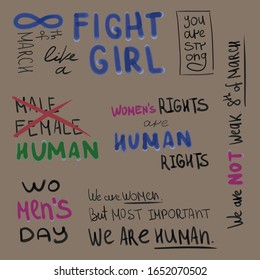 8
th of
MARCH
FIGHT
like
a
GIRL
you
are
strong
MALE
FEMALE
HUMAN
WOMEN'S RIGHTS
are
HUMAN
RIGHTS
We are NOT Weak 8th of MARCH
WO
MeN's
DAY
We are WOMEN
But MOST IMPORTANT
We ARE HUMAN.
shutterstock.com · 1652070502